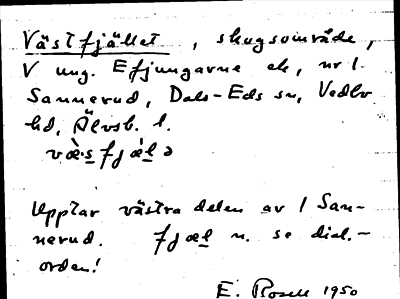 Västfjället, skogsområde,
V ung. Efjungarne ek, nr 1
Sannerud, Dals-Eds sn, Vedbo
hd, Älvsb. l.
væ̀·s fjæ̀lə
Upptar västra delen av 1 San-
nerud. fjæl n. se dial.-
orden!
E. Rosell 1950